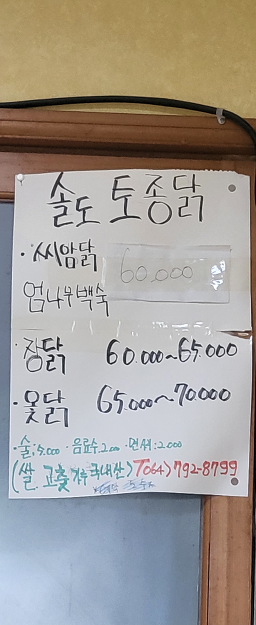 솔도 토종닭
·씨암닭
엄나무백숙 60.000
·장닭 60.000~65.000
·옻닭 65.000~70.000
·술:5.000 ·음료수.2.000 ·면사리:2.000
(쌀. 고춧가루 국내산) T064)792-8799